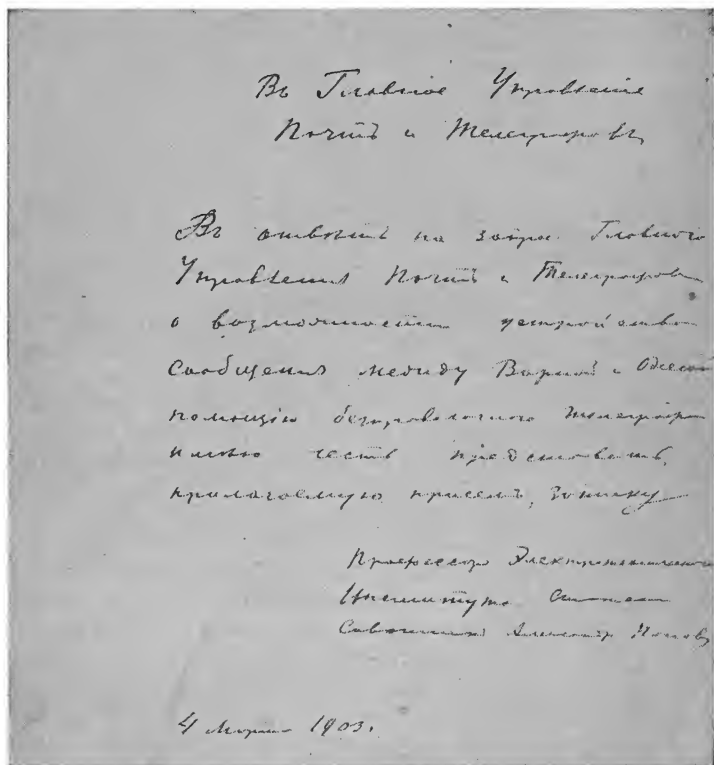 Въ Главное Управленіе
Почтъ и Телеграфовъ
Въ отвѣтъ на запр. Главнаго
Управленія Почтъ и Телеграфовъ
о возможности устройства
сообщенія между Варной и Одессой
помощію безпроволочнаго телеграфа
имѣю честь представить,
прилагаемую при семъ, записку
Профессоръ Электротехническаго
Института Статскій
Совѣтникъ Александръ Поповъ
4 Марта 1903.